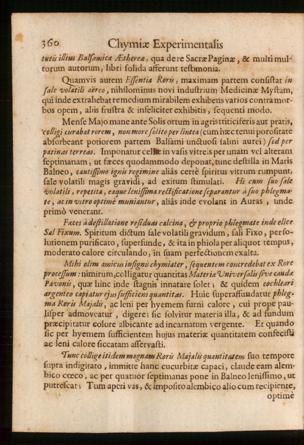 360 Chymiæ Experimentalis
tutis illius Balsamica Ætherea, qua de re Sacræ Paginæ, & multi mul-
torum autorum, libri solida asserunt testimonia.
Quamvis autem Essentia Roris, maximam partem consistat in
sale volatili aëreo, nihilominus novi industrium Medicinæ Mystam,
qui inde extrahebat remedium mirabilem exhibens varios contra mor-
bos opem, aliis frustra & infeliciter exhibitis, sequenti modo.
Mense Majo mane ante Solis ortum in agris triticeiferis aut pratis,
colligi curabat rorem, non more solito per lintea (cum hæc tenui porositate
absorbeant potiorem partem Balsami undtuosi salini aurei) sed per
patinas terreas. Imponatur colle in vasis vitreis per unam vel alteram
septimanam, ut fæces quodammodo deponat, tunc destilla in Maris
Balneo, cautissimo ignis regimine alias certè spiritus vitrum rumpunt,
sale volatili magis gravidi, ad exitum stimulati. Hi cum suo sale
volatili, repetita, eoque lenissima rectificatione separantur à suo phlegma-
te, ac in vitro optimè muniantur, alias inde evolant in Auras, unde
primò venerant.
Fæces à destillatione residuas calcina, & proprio phlegmate inde elice
Sal Fixum. Spiritum dictum sale volatili gravidum, sali Fixo, perso-
lutionem purificato, superfunde, & ita in phiola per aliquot tempus,
moderato calore circulando, in suam perfectionem exalta.
Misit olim amicus insignis chymiater, sequentem concredebat ex Rore
processum: nimirum, colligatur quantitas Materiæ Universalis sive caudæ
Pavonis, quæ hinc inde stagnis innatare solet, & quidem cochleari
argenteo capiatur ejus sufficiens quantitas. Huic superaffundatur phleg-
ma Roris Majalis, ac leni per hyemem furni calore, cui prope pau-
lisper admoveatur, digere: sic solvitur materia illa, & ad fundum
præcipitatur colore albicante ad incarnatum vergente. Et quando
sic per hyemem sufficientem hujus materiæ quantitatem confecisti
ac leni calore siccatam asservasti.
Tunc collige itidem magnam Roris Majalis quantitatem suo tempore
supra indigitato, immitte hanc cucurbitæ capaci, claude eam alem-
bico cœco, ac per quatuor septimanas pone in Balneo lenissimo, ut
putrescat: Tum aperi vas, & imposito alembico alio cum recipiente,
optimè